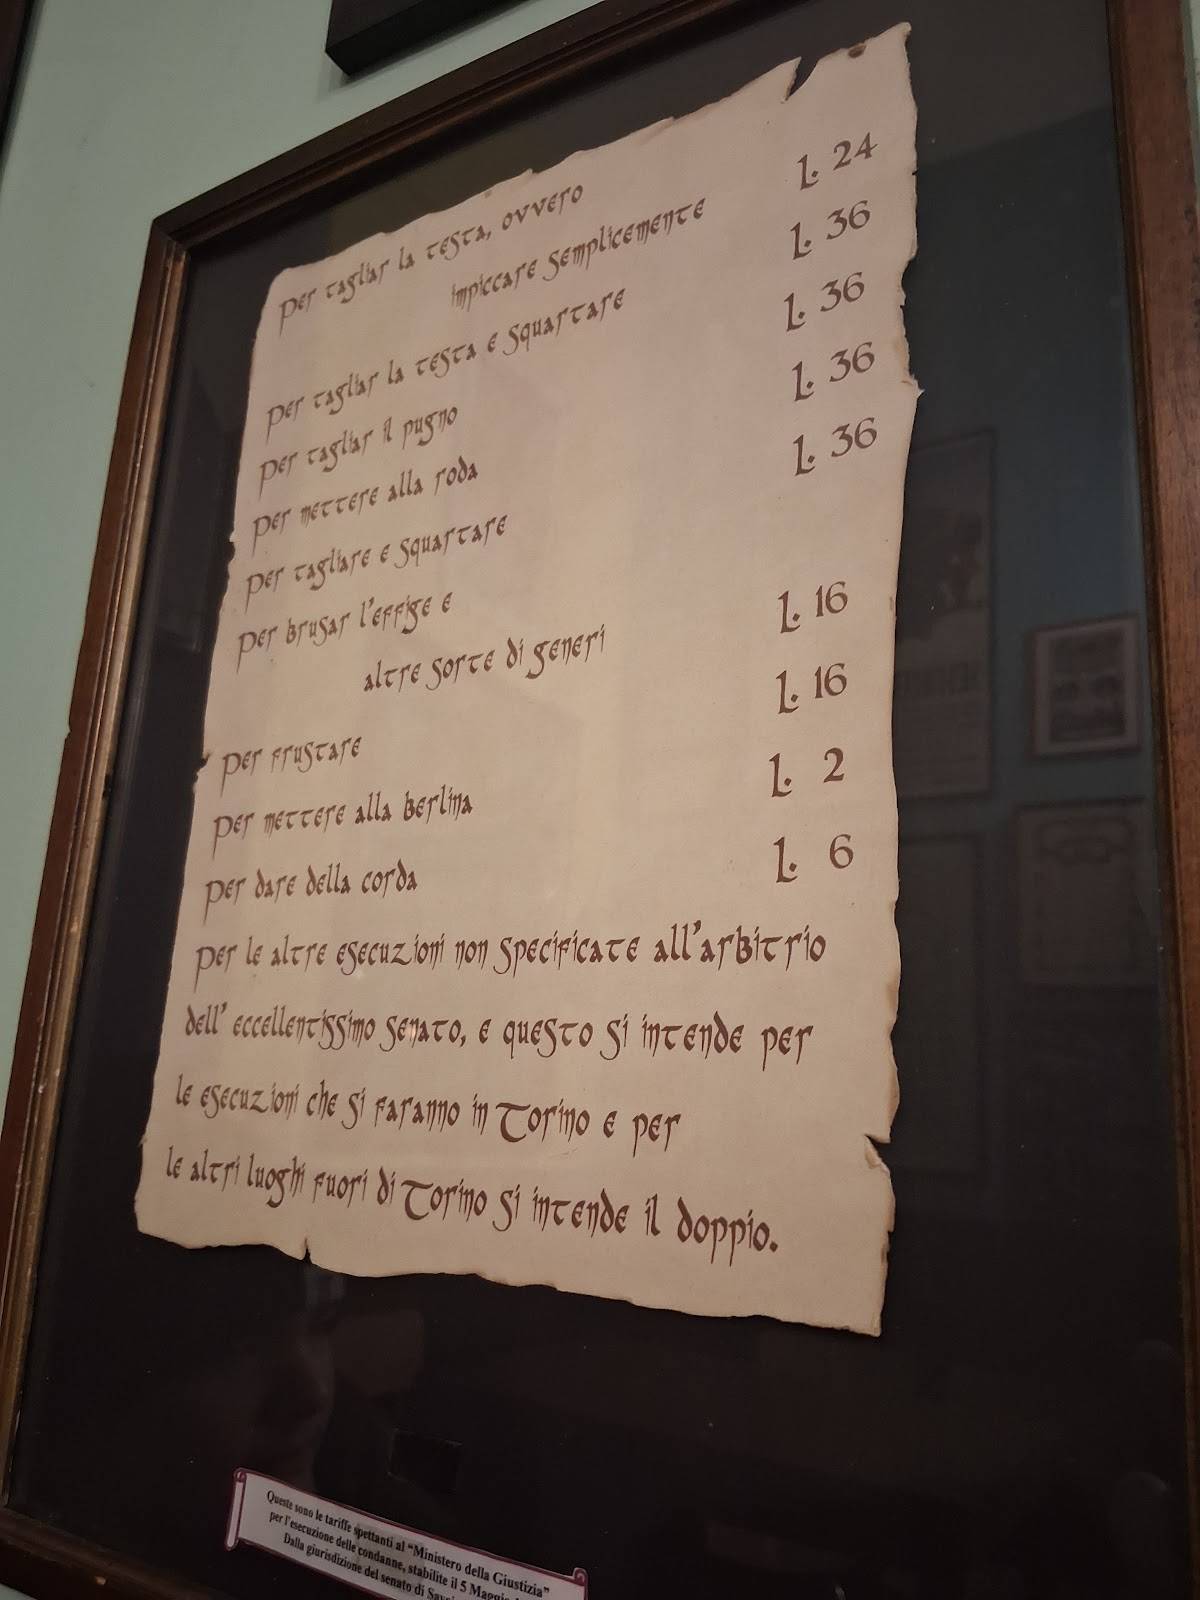 Per tagliar la testa, ovvero
impiccare semplicemente L. 24
Per tagliar la testa e squartare L. 36
Per tagliar il pugno L. 36
Per mettere alla roda L. 36
Per tagliare e squartare L. 36
Per brusar l'effige e
altre sorte di generi L. 16
Per frustare L. 16
Per mettere alla berlina L. 2
Per dare della corda L. 6
Per le altre esecuzioni non specificate all'arbitrio
dell' eccellentissimo senato, e questo si intende per
le esecuzioni che si faranno in Torino e per
le altri luoghi fuori di Torino si intende il doppio.
Queste sono le tariffe spettanti al "Ministero della Giustizia"
per l'esecuzione delle condanne, stabilite il 5 Maggio
Dalla giurisdizione del senato di